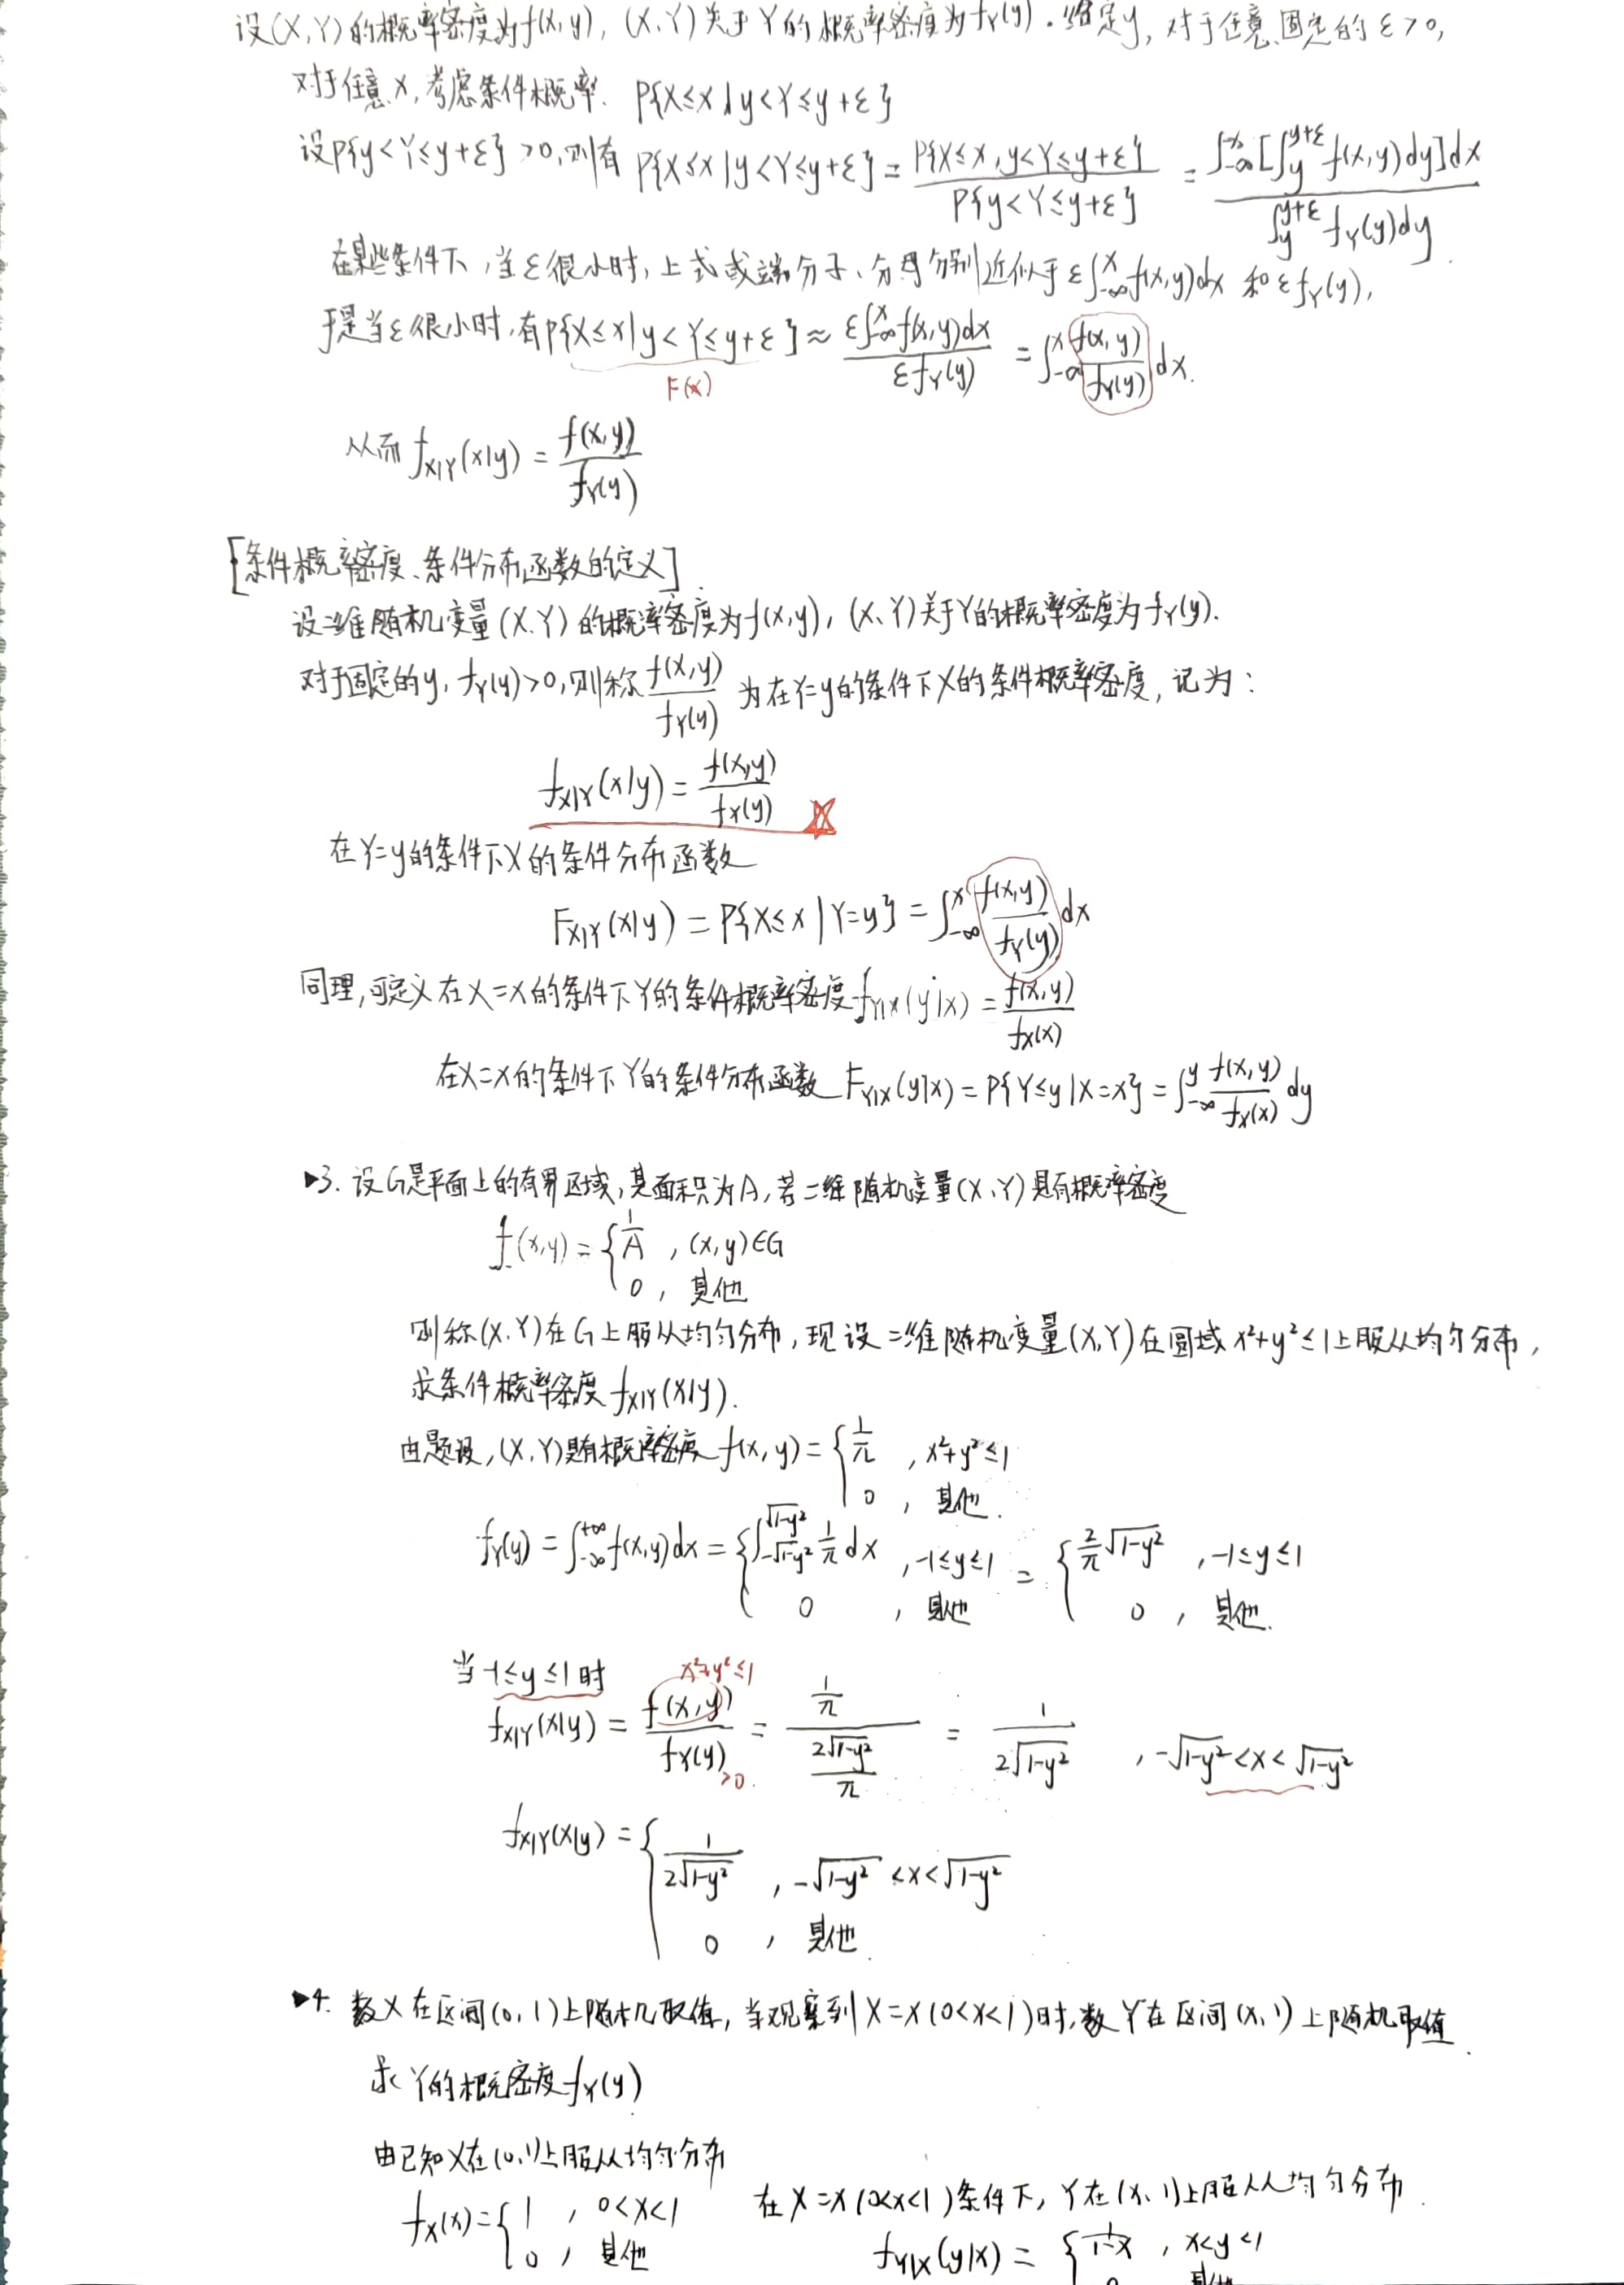 设(X,Y)的概率密度为f(x,y), (X,Y)关于Y的概率密度为f_Y(y). 给定y, 对于任意固定的ε>0,
对于任意x,考虑条件概率. P{X≤x|y<Y≤y+ε}
设P{y<Y≤y+ε}>0,则有 P{X≤x|y<Y≤y+ε} = P{X≤x,y<Y≤y+ε} / P{y<Y≤y+ε} = ∫_{-∞}^{x}[∫_{y}^{y+ε} f(x,y)dy]dx / ∫_{y}^{y+ε} f_Y(y)dy.
在某些条件下,当ε很小时,上式或端分子、分母分别近似于ε∫_{-∞}^{x}f(x,y)dx 和εf_Y(y),
于是当ε很小时,有P{X≤x|y<Y≤y+ε} ≈ ε∫_{-∞}^{x}f(x,y)dx / εf_Y(y) = ∫_{-∞}^{x} f(x,y)/f_Y(y) dx.
F(x)
从而 f_{X|Y}(x|y) = f(x,y)/f_Y(y)
[条件概率密度、条件分布函数的定义]
设二维随机变量(X,Y)的概率密度为f(x,y), (X,Y)关于Y的概率密度为f_Y(y).
对于固定的y, f_Y(y)>0,则称 f(x,y)/f_Y(y) 为在Y=y的条件下X的条件概率密度, 记为:
f_{X|Y}(x|y) = f(x,y)/f_Y(y)
在Y=y的条件下X的条件分布函数
F_{X|Y}(x|y) = P{X≤x|Y=y} = ∫_{-∞}^{x} f(x,y)/f_Y(y) dx
同理,可定义在X=x的条件下Y的条件概率密度f_{Y|X}(y|x) = f(x,y)/f_X(x)
在X=x的条件下Y的条件分布函数 F_{Y|X}(y|x) = P{Y≤y|X=x} = ∫_{-∞}^{y} f(x,y)/f_X(x) dy
▶3. 设G是平面上的有界区域,其面积为A,若二维随机变量(X,Y)具有概率密度
f(x,y) = { 1/A , (x,y)∈G
0 , 其他
则称(X,Y)在G上服从均匀分布,现设二维随机变量(X,Y)在圆域x²+y²≤1上服从均匀分布,
求条件概率密度f_{X|Y}(x|y).
由题设,(X,Y)具有概率密度 f(x,y) = { 1/π , x²+y²≤1
0 , 其他.
f_Y(y) = ∫_{-∞}^{+∞} f(x,y)dx = { ∫_{-√(1-y²)}^{√(1-y²)} 1/π dx , -1≤y≤1 = { 2/π √(1-y²) , -1≤y≤1
0 , 其他 0 , 其他.
当-1≤y≤1时 x²+y²≤1
f_{X|Y}(x|y) = f(x,y)/f_Y(y) = (1/π) / (2√(1-y²)/π) = 1/(2√(1-y²)) , -√(1-y²)<x<√(1-y²)
>0.
f_{X|Y}(x|y) = { 1/(2√(1-y²)) , -√(1-y²)<x<√(1-y²)
0 , 其他.
▶4. 数X在区间(0,1)上随机取值, 当观察到X=x(0<x<1)时,数Y在区间(x,1)上随机取值.
求Y的概密度f_Y(y)
由已知X在(0,1)上服从均匀分布
在X=x(0<x<1)条件下, Y在(x,1)上服从均匀分布.
f_X(x) = { 1 , 0<x<1
0 , 其他
f_{Y|X}(y|x) = { 1/(1-x) , x<y<1